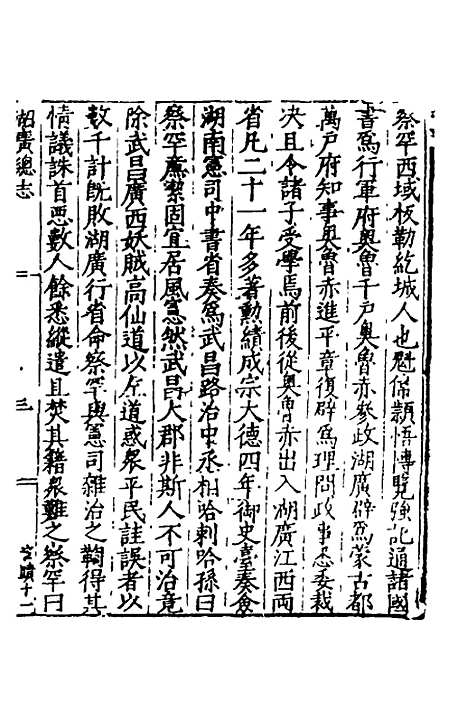 察罕西域板勒紇城人也魁偉頴悟博覽強記通諸國
書爲行軍府奥魯千戸奥魯赤叅政湖廣辟爲蒙古都
萬戸府知事奥魯赤進平章復辟爲理問政事悉委裁
決且令諸子受學焉前後從奥魯赤出入湖廣江西兩
省凡二十一年多著勳績成宗大德四年御史臺奏僉
湖南憲司中書省奏爲武昌路治中丞相哈剌哈孫曰
察罕廉潔固宜居風憲然武昌大郡非斯人不可治竟
除武昌廣西妖賊高仙道以左道惑衆平民詿誤者以
數千計旣敗湖廣行省命察罕與憲司雜治之鞫得其
情議誅首惡數人餘悉縱遣且焚其籍衆難之察罕曰
湖廣總志
宦蹟十二